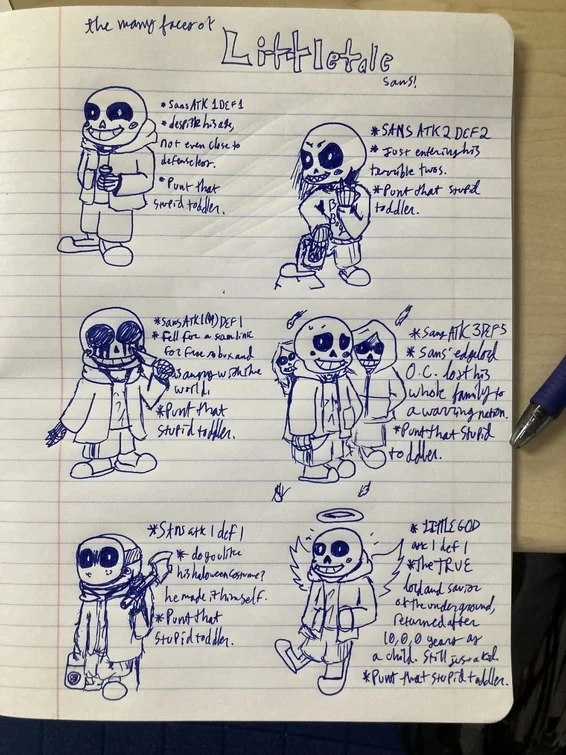 the many faces of
Littletale
sans!
* Sans ATK 1 DEF 1
* despite his age,
not even close to
defenseless.
* Punt that
stupid toddler.
* SANS ATK 2 DEF 2
* Just entering his
terrible twos.
* Punt that stupid
toddler.
* Sans ATK 1(M) DEF 1
* fell for a scam link
for free robux and
is angry with the
world.
* Punt that
stupid toddler.
* Sans ATK 3 DEF 5
* Sans' edgelord
O.C. lost his
whole family to
a warring nation.
* Punt that stupid
toddler.
* Sans atk 1 def 1
* do you like
his haloween costume?
he made it himself.
* Punt that
stupid toddler.
* LITTLE GOD
atk 1 def 1
* The TRUE
lord and savior
of the underground,
returned after
10,0,0 years as
a child. Still just a kid.
* Punt that stupid toddler.